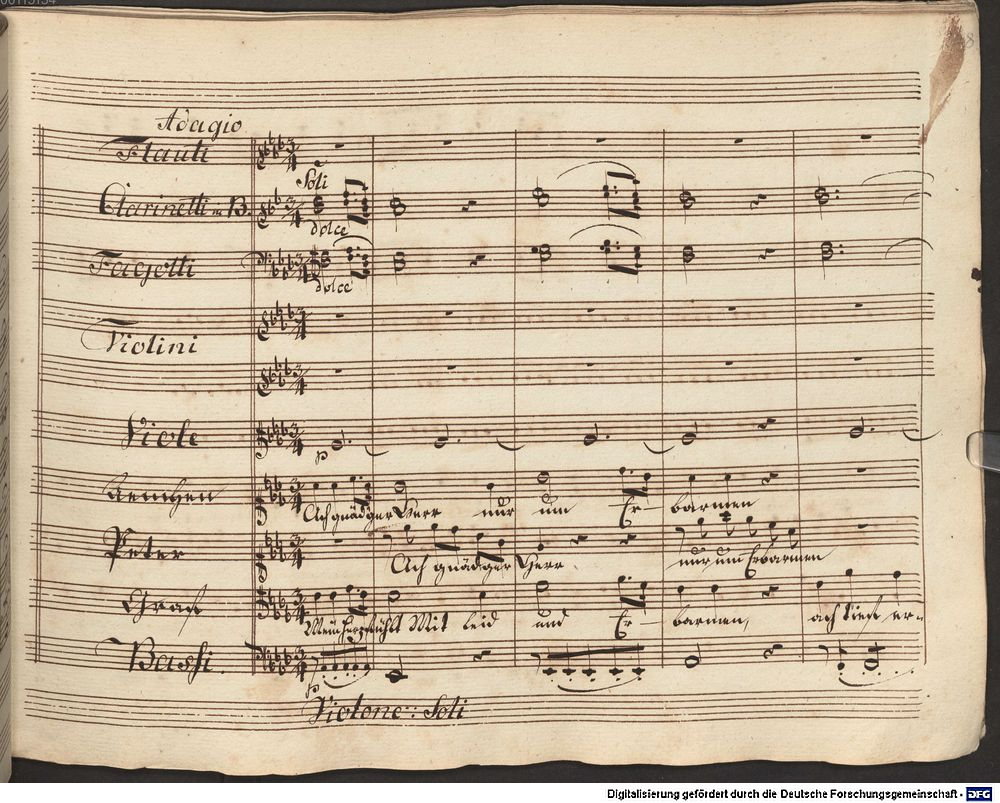 Adagio
Flauti
Soli
Clarinetti in B.
dolce
Fagotti
dolce
Violini
Viole
p
Ach gnädger Herr nur um Er- barmen
Peter
Ach gnädger Herr nur um Erbarmen
Graf
Mein Herz fühlt Mit leid und Er- barmen, ach dieß er-
Bassi
p
Violone: Soli
Digitalisierung gefördert durch die Deutsche Forschungsgemeinschaft - DFG